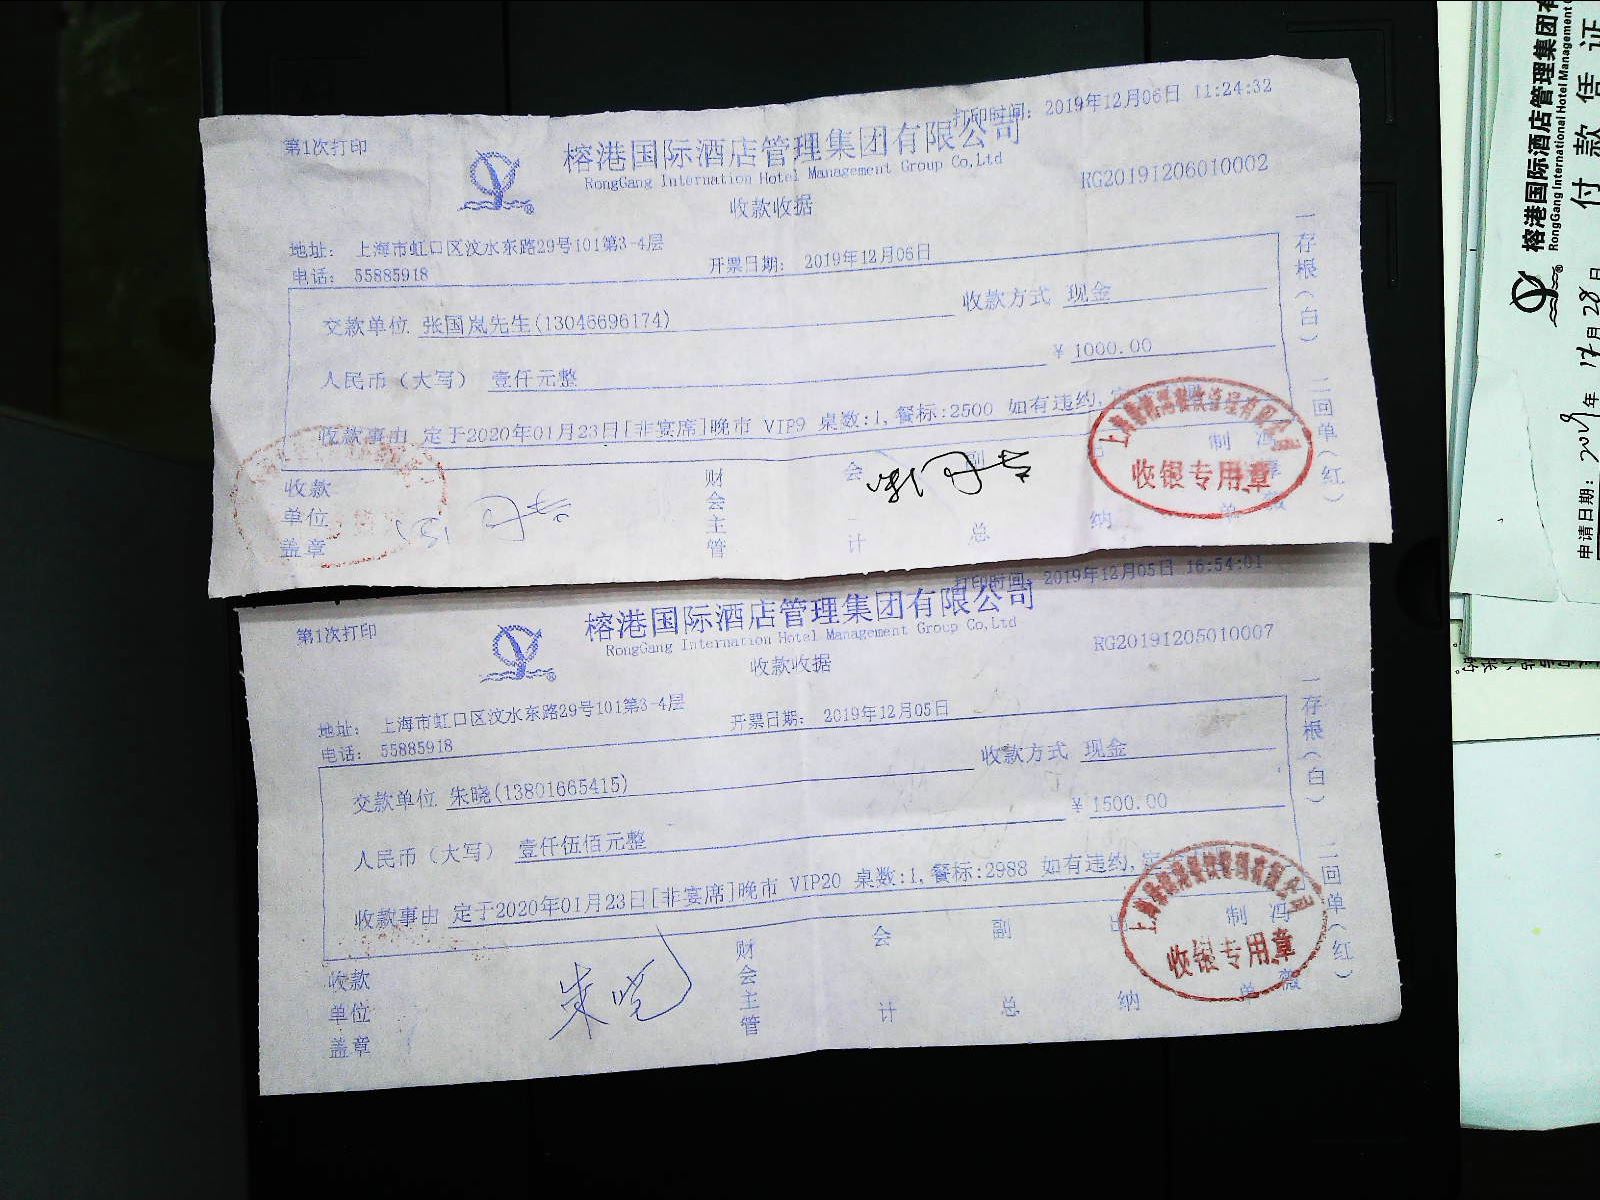 打印时间: 2019年12月06日 11:24:32
第1次打印
榕港国际酒店管理集团有限公司
RongGang Internation Hotel Management Group Co,Ltd
RG20191206010002
收款收据
地址: 上海市虹口区汶水东路29号101第3-4层
电话: 55885918
开票日期: 2019年12月06日
交款单位 张国岚先生(13046696174)
收款方式 现金
人民币（大写） 壹仟元整
¥ 1000.00
收款事由 定于2020年01月23日[非宴席]晚市 VIP9 桌数:1,餐标:2500 如有违约,
收款单位盖章
财会主管
会计
副总
出纳
制单
收银专用章
一存根(白)
二回单(红)
打印时间: 2019年12月05日 16:54:01
第1次打印
榕港国际酒店管理集团有限公司
RongGang Internation Hotel Management Group Co,Ltd
RG20191205010007
收款收据
地址: 上海市虹口区汶水东路29号101第3-4层
电话: 55885918
开票日期: 2019年12月05日
交款单位 朱晓(13801665415)
收款方式 现金
人民币（大写） 壹仟伍佰元整
¥ 1500.00
收款事由 定于2020年01月23日[非宴席]晚市 VIP20 桌数:1,餐标:2988 如有违约,
收款单位盖章
朱晓
财会主管
会计
副总
出纳
制单
收银专用章
一存根(白)
二回单(红)
榕港国际酒店管理集团有
RongGang International Hotel Management
付款凭证
申请日期: 2019年12月28日